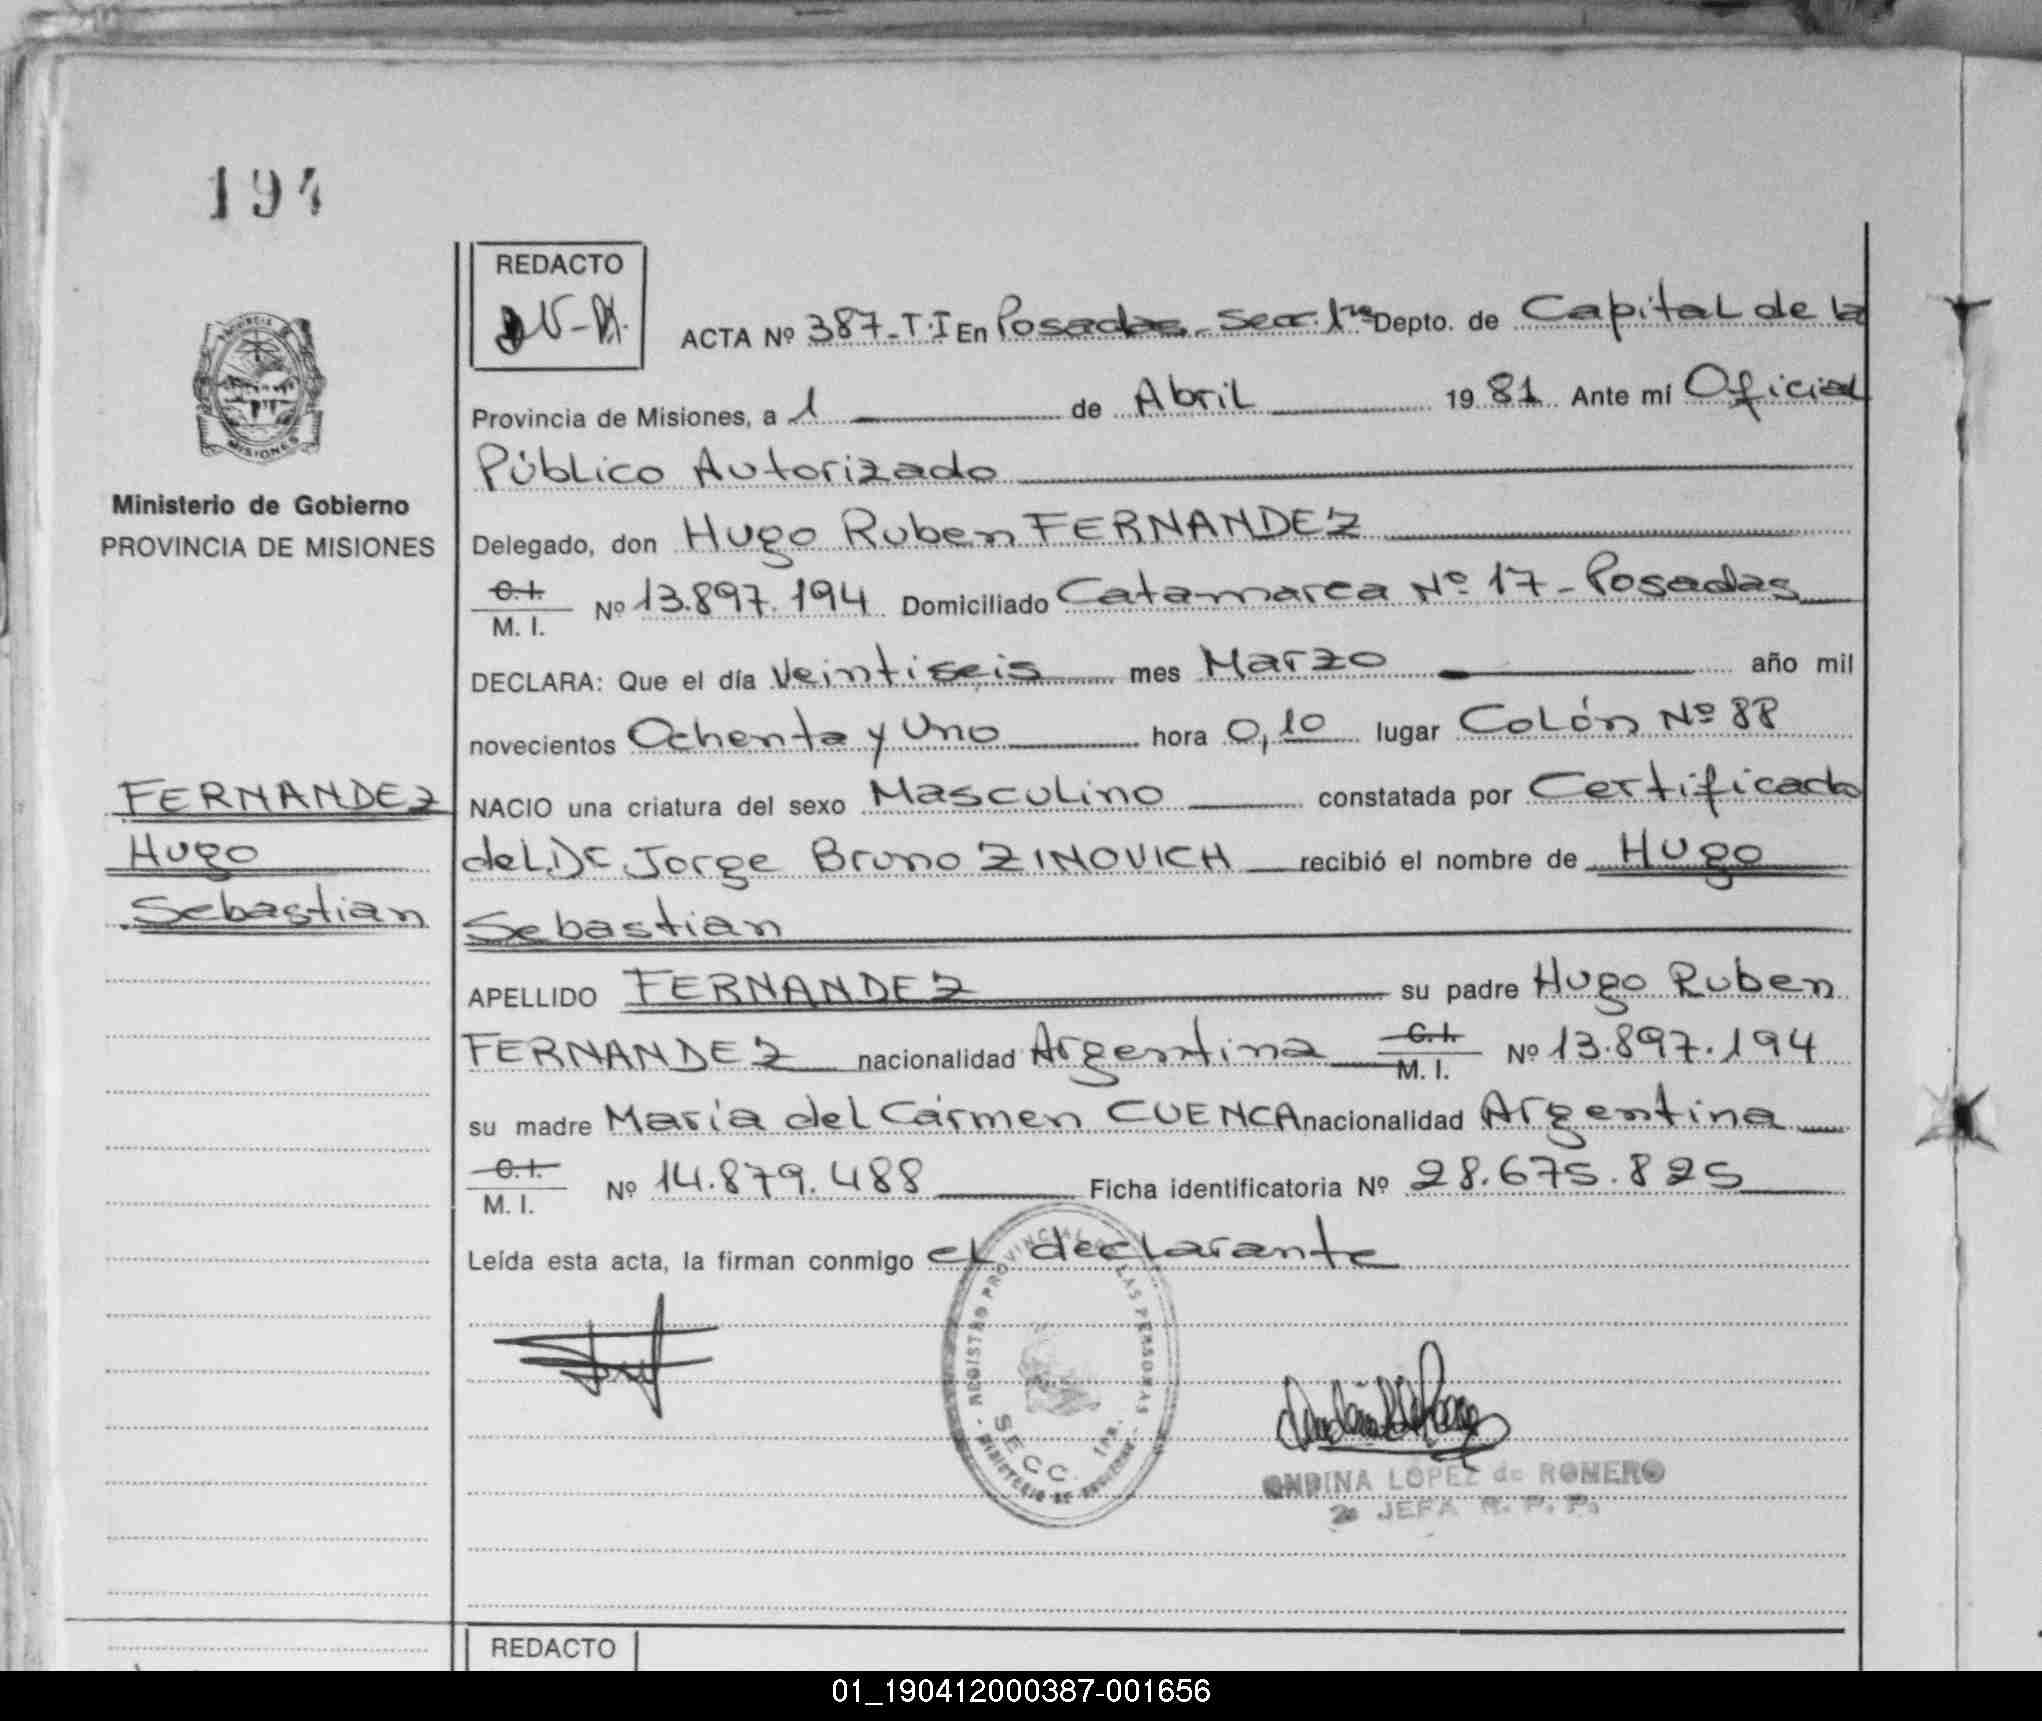 194
REDACTO
ACTA Nº 387-T-I En Posadas Secc. 1ra Depto. de Capital de la
Provincia de Misiones, a 1 de Abril 1981 Ante mí Oficial
Público Autorizado
Ministerio de Gobierno
PROVINCIA DE MISIONES
Delegado, don Hugo Ruben FERNANDEZ
C.I. M. I. Nº 13.897.194 Domiciliado Catamarca Nº 17 - Posadas
DECLARA: Que el día Veintiseis mes Marzo año mil
novecientos Ochenta y Uno hora 0,10 lugar Colón Nº 88
FERNANDEZ
Hugo
Sebastian
NACIO una criatura del sexo Masculino constatada por Certificado
del Dr. Jorge Bruno ZINOVICH recibió el nombre de Hugo
Sebastian
APELLIDO FERNANDEZ su padre Hugo Ruben
FERNANDEZ nacionalidad Argentina C.I. M. I. Nº 13.897.194
su madre María del Cármen CUENCA nacionalidad Argentina
C.I. M. I. Nº 14.879.488 Ficha identificatoria Nº 28.675.825
Leída esta acta, la firman conmigo el declarante
REGISTRO PROVINCIAL DE LAS PERSONAS
SECC. 1ra.
MINISTERIO DE GOBIERNO
ONDINA LOPEZ de ROMERO
JEFA R. P. P.
REDACTO
01_190412000387-001656